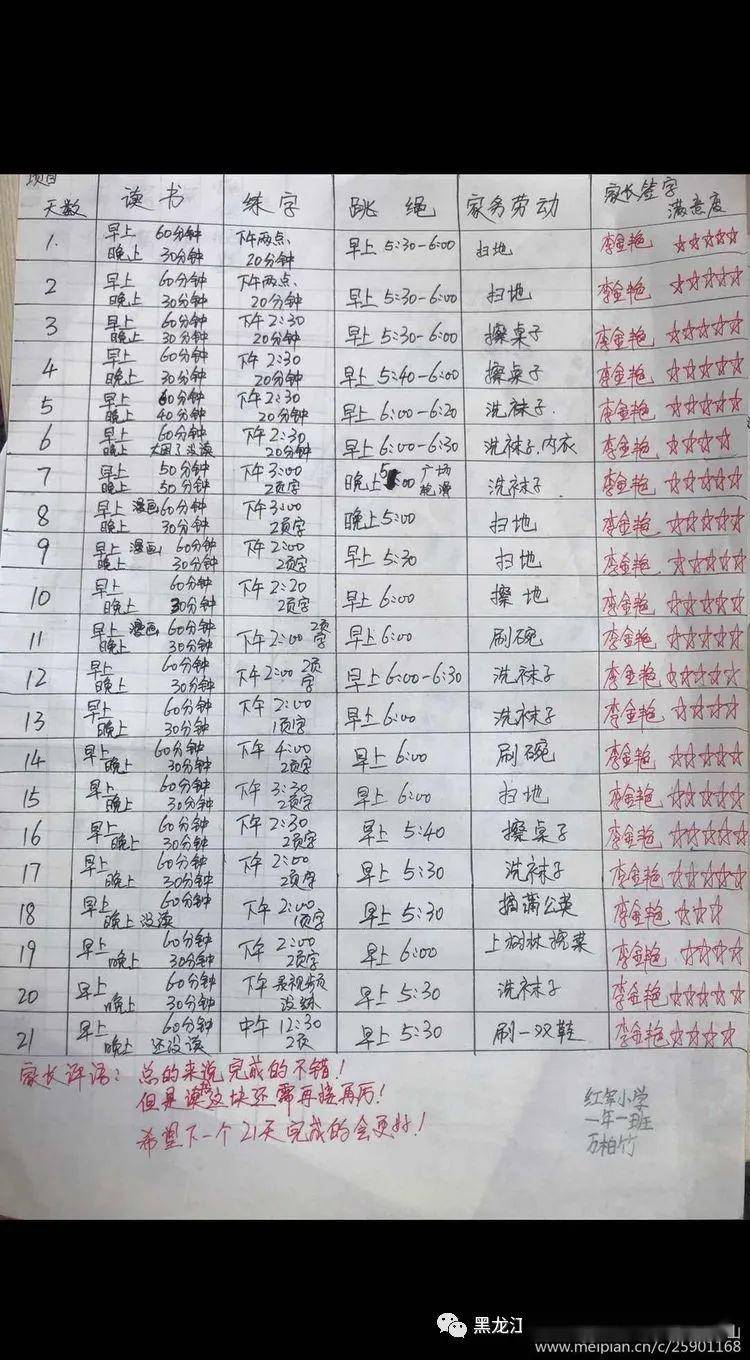 项目
天数 读书 练字 跳绳 家务劳动 家长签字 满意度
1. 早上 60分钟 晚上 30分钟 下午两点. 20分钟 早上 5:30-6:00 扫地 李金艳 ☆☆☆☆☆
2 早上 60分钟 晚上 30分钟 下午两点. 20分钟 早上 5:30-6:00 扫地 李金艳 ☆☆☆☆☆
3 早上 60分钟 晚上 30分钟 下午 2:30 20分钟 早上 5:30-6:00 擦桌子 李金艳 ☆☆☆☆☆
4 早上 60分钟 晚上 30分钟 下午 2:30 20分钟 早上 5:40-6:00 擦桌子 李金艳 ☆☆☆☆☆
5 早上 60分钟 晚上 40分钟 下午 2:30 20分钟 早上 6:00-6:20 洗袜子. 李金艳 ☆☆☆☆☆
6 早上 60分钟 晚上 太困了没读 下午 2:30 20分钟 早上 6:00-6:30 洗袜子.内衣 李金艳 ☆☆☆☆
7 早上 50分钟 晚上 50分钟 下午 3:00 2页字 晚上 5:00 广场 洗袜子 李金艳 ☆☆☆☆☆
8 早上 漫画 60分钟 晚上 30分钟 下午 3:00 2页字 晚上 5:00 扫地 李金艳 ☆☆☆☆☆
9 早上 漫画 60分钟 晚上 30分钟 下午 2:00 2页字 早上 5:30 扫地 李金艳 ☆☆☆☆☆
10 早上 60分钟 晚上 30分钟 下午 2:20 2页字 早上 6:00 擦地 李金艳 ☆☆☆☆☆
11 早上 漫画 60分钟 晚上 30分钟 下午 2:00 2页字 早上 6:00 刷碗 李金艳 ☆☆☆☆☆
12 早上 60分钟 晚上 30分钟 下午 2:00 2页字 早上 6:00-6:30 洗袜子 李金艳 ☆☆☆☆☆
13 早上 60分钟 晚上 30分钟 下午 2:00 1页字 早上 6:00 洗袜子 李金艳 ☆☆☆☆
14 早上 60分钟 晚上 30分钟 下午 4:00 2页字 早上 6:00 刷碗 李金艳 ☆☆☆☆☆
15 早上 60分钟 晚上 30分钟 下午 3:30 2页字 早上 6:00 扫地 李金艳 ☆☆☆☆☆
16 早上 60分钟 晚上 30分钟 下午 2:30 2页字 早上 5:40 擦桌子 李金艳 ☆☆☆☆☆
17 早上 60分钟 晚上 30分钟 下午 2:00 2页字 早上 5:30 洗袜子 李金艳 ☆☆☆☆☆
18 早上 60分钟 晚上 没读 下午 2:00 1页字 早上 5:30 摘蒲公英 李金艳 ☆☆☆
19 早上 60分钟 晚上 30分钟 下午 2:00 2页字 早上 6:00 上树林挖菜 李金艳 ☆☆☆☆
20 早上 60分钟 晚上 30分钟 下午 录视频 没练 早上 5:30 洗袜子 李金艳 ☆☆☆☆☆
21 早上 60分钟 晚上 还没读 中午 12:30 2页 早上 5:30 刷一双鞋 李金艳 ☆☆☆☆
家长评语: 总的来说完成的不错!
但是读这块还需再接再厉!
希望下一个21天完成的会更好!
红军小学
一年一班
万柏竹
黑龙江
www.meipian.cn/c/25901168